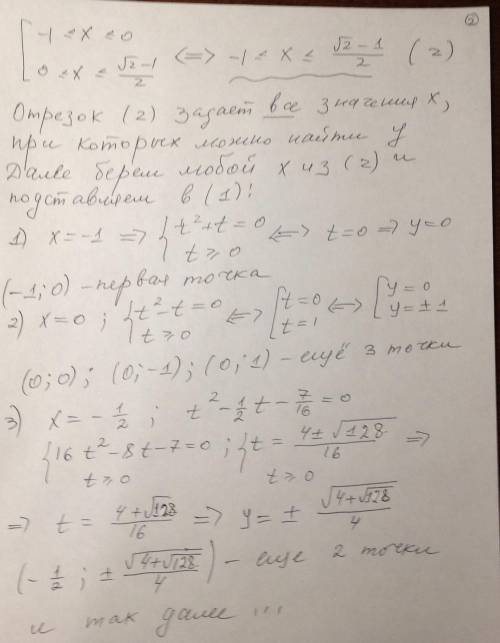 ②
[ -1 ≤ x ≤ 0
[ 0 ≤ x ≤ (√2 - 1)/2 <=> -1 ≤ x ≤ (√2 - 1)/2 (2)
Отрезок (2) задает все значения x,
при которых можно найти y
Далее берем любой x из (2) и
подставляем в (1):
1) x = -1 => { t² + t = 0 ; t ≥ 0 <=> t = 0 => y = 0
(-1; 0) - первая точка
2) x = 0 ; { t² - t = 0 ; t ≥ 0 <=> [ t = 0 ; t = 1 <=> [ y = 0 ; y = ± 1
(0; 0) ; (0; -1) ; (0; 1) - ещё 3 точки
3) x = - 1/2 ; t² - 1/2 t - 7/16 = 0
{ 16 t² - 8t - 7 = 0 ; t ≥ 0 ; { t = (4 ± √128)/16 ; t ≥ 0 =>
=> t = (4 + √128)/16 => y = ± √(4 + √128)/4
(- 1/2 ; ± √(4 + √128)/4) - еще 2 точки
и так далее ...